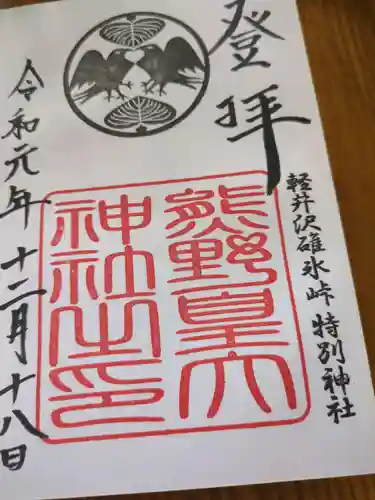 登拝
軽井沢碓氷峠 特別神社
熊野皇大
神社之印
令和元年十二月十八日